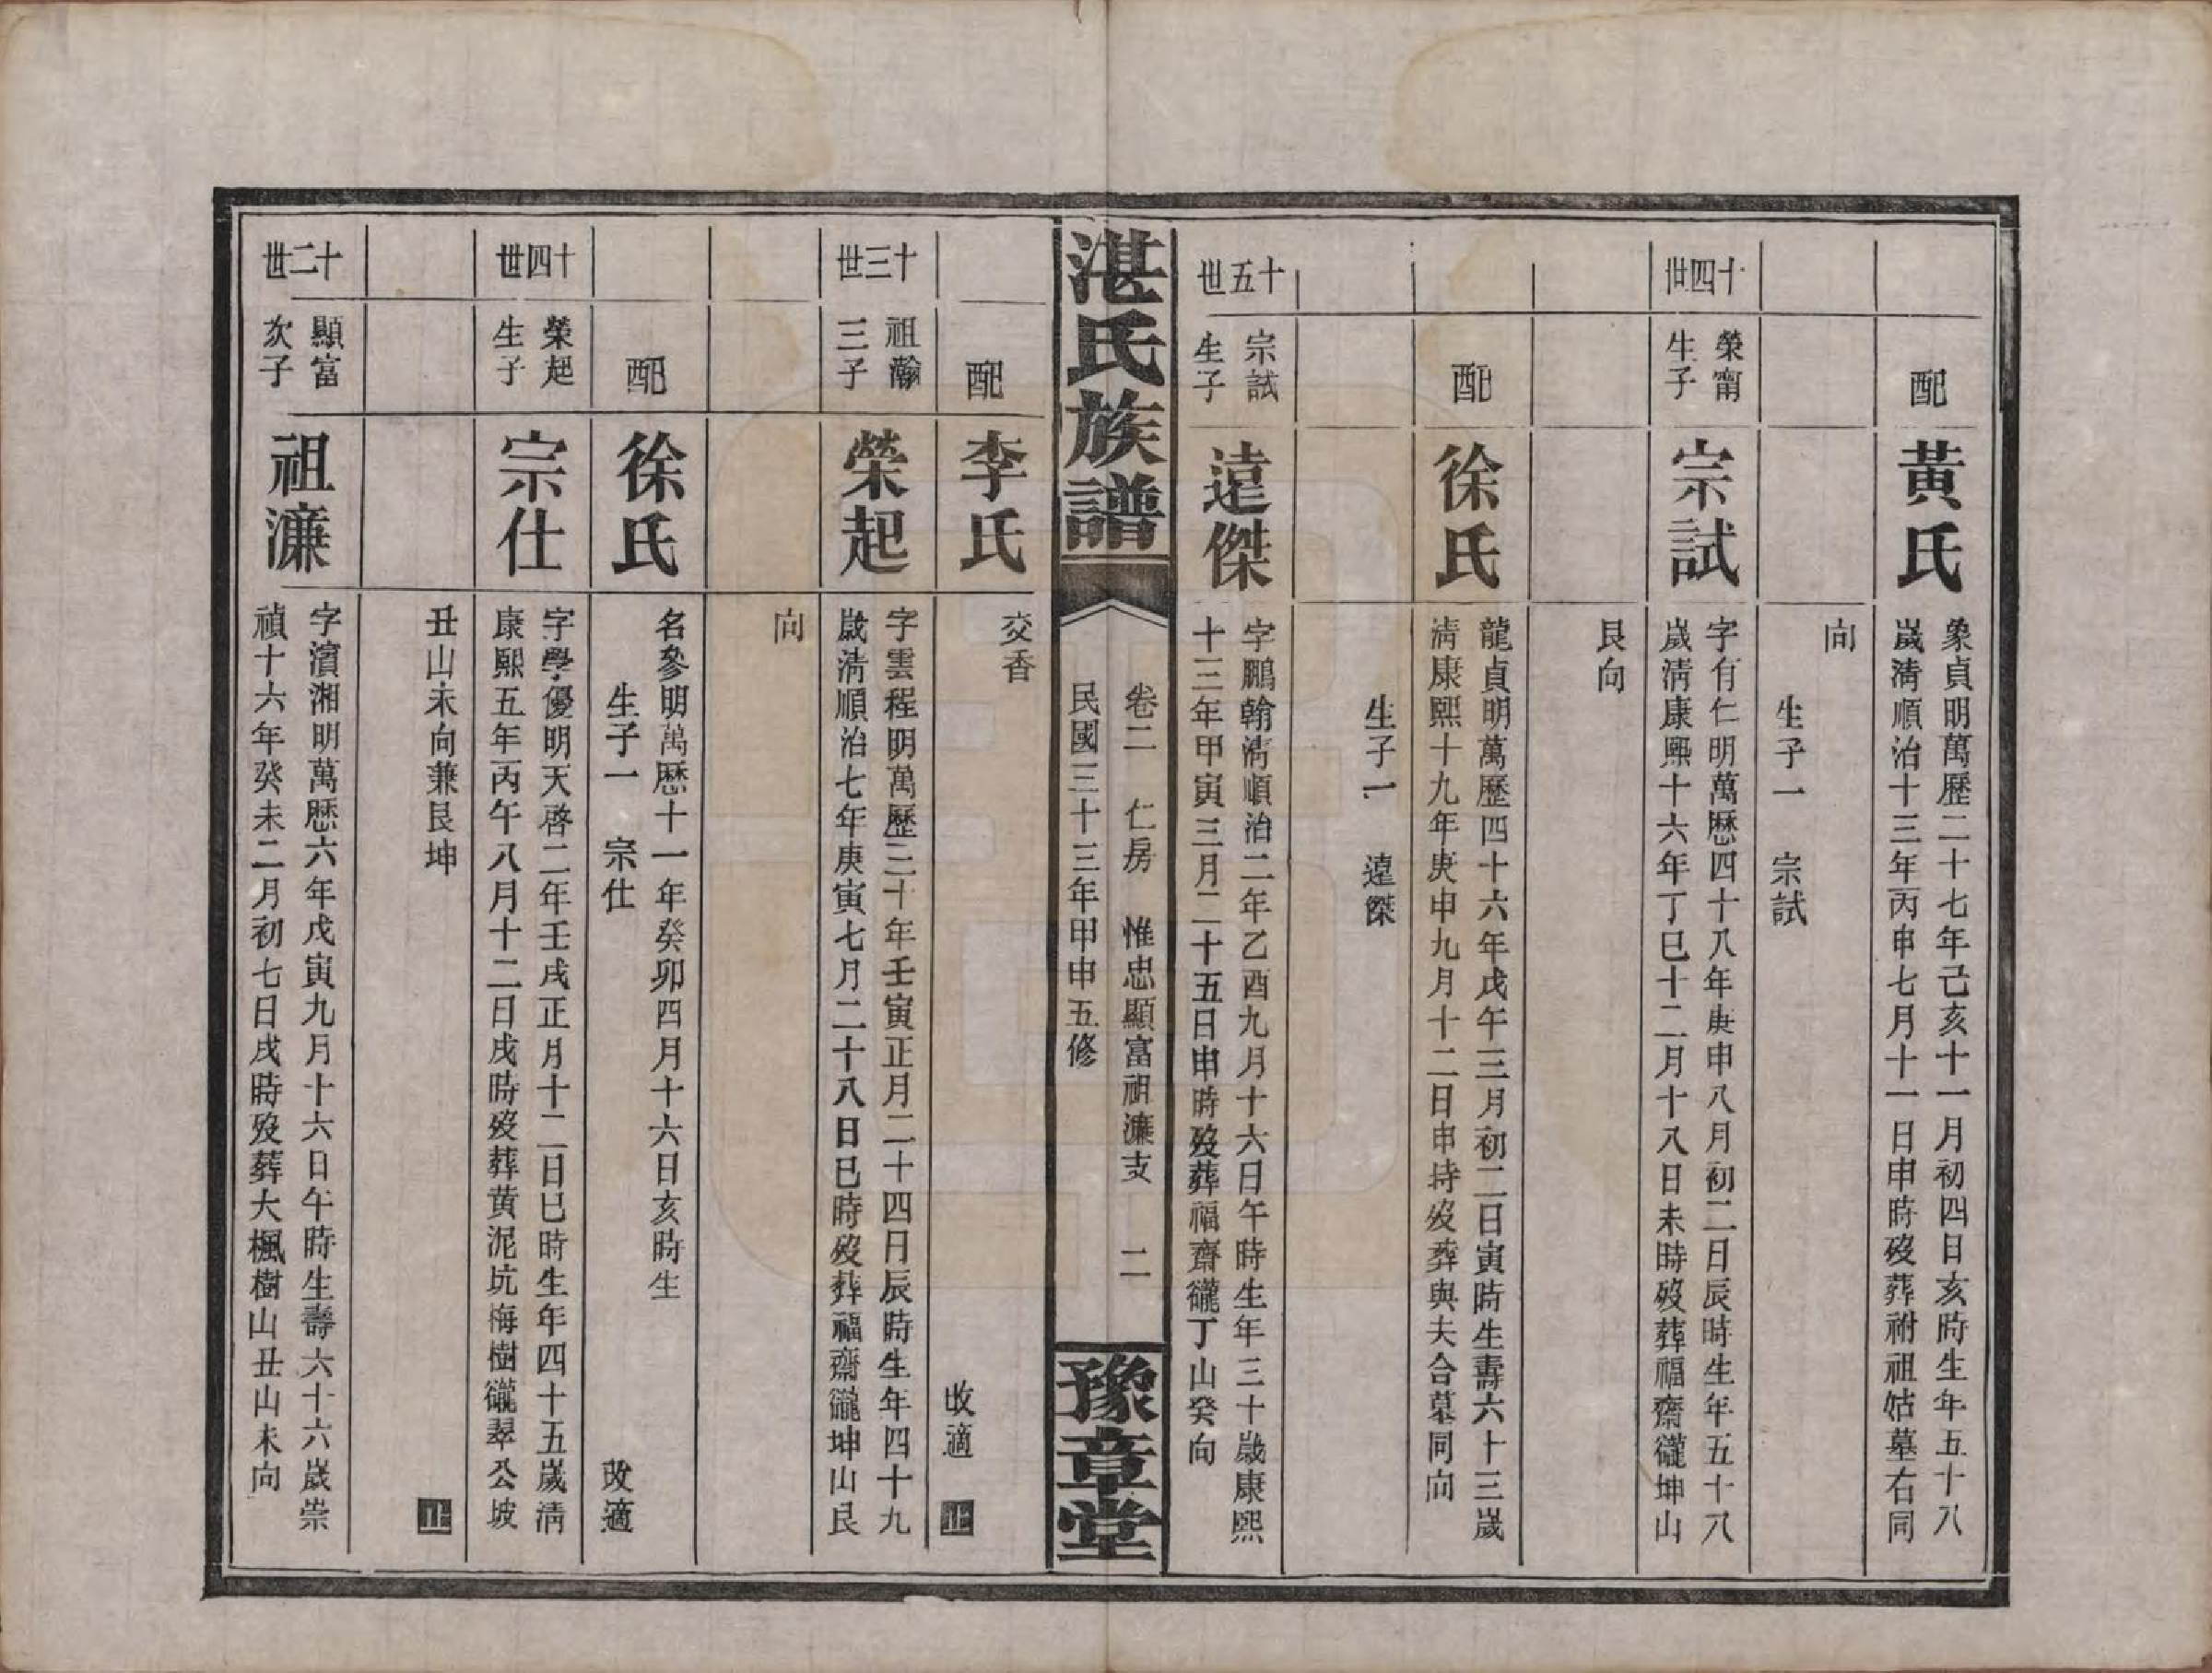 配
黃氏
象貞明萬歷二十七年己亥十一月初四日亥時生年五十八
歲淸順治十三年丙申七月十一日申時歿葬祔祖姑墓右同
向
生子一　宗試
十四世
榮甯
生子
宗試
字有仁明萬歷四十八年庚申八月初二日辰時生年五十八
歲淸康熙十六年丁巳十二月十八日未時歿葬福齋坤山
艮向
配
徐氏
龍貞明萬歷四十六年戊午三月初二日寅時生壽六十三歲
淸康熙十九年庚申九月十二日申時歿葬與夫合墓同向
生子一　遠傑
十五世
宗試
生子
遠傑
字鵬翰淸順治二年乙酉九月十六日午時生年三十歲康熙
十三年甲寅三月二十五日申時歿葬福齋丁山癸向
湛氏族譜
卷二　仁房　惟忠顯富祖濂支　二
民國三十三年甲申五修
豫章堂
配
李氏
交香
改適　止
十三世
祖瀚
三子
榮起
字雲程明萬歷三十年壬寅正月二十四日辰時生年四十九
歲淸順治七年庚寅七月二十八日巳時歿葬福齋坤山艮
向
配
徐氏
名參明萬歷十一年癸卯四月十六日亥時生
生子一　宗仕　改適
十四世
榮起
生子
宗仕
字學優明天啓二年壬戌正月十二日巳時生年四十五歲淸
康熙五年丙午八月十二日戌時歿葬黃泥坑梅樹翠公坡
丑山未向兼艮坤　止
十二世
顯富
次子
祖濂
字濱湘明萬歷六年戊寅九月十六日午時生壽六十六歲崇
禎十六年癸未二月初七日戌時歿葬大楓樹山丑山未向